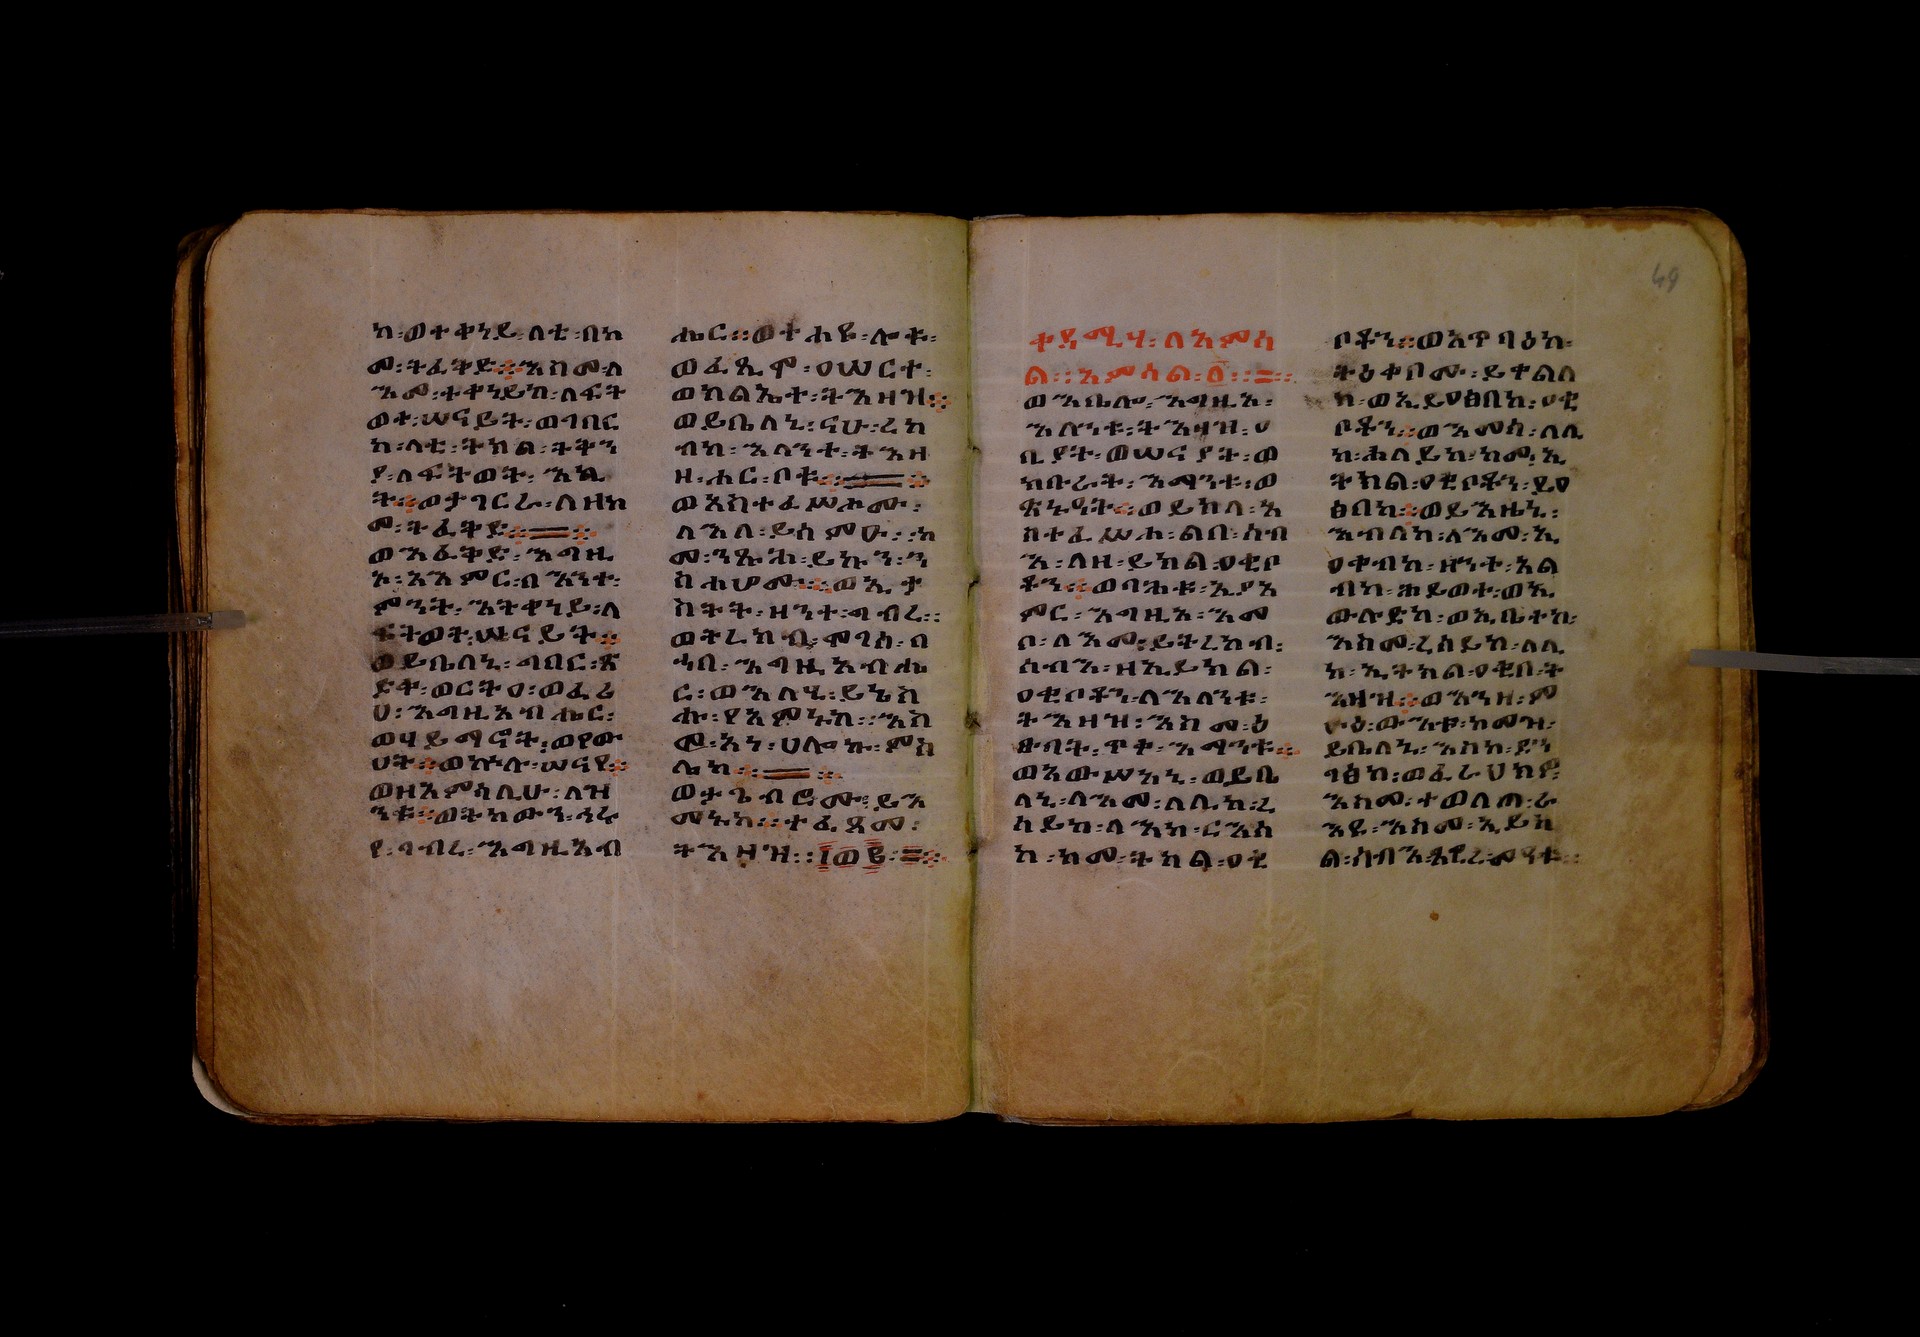 ከ፡ወተቀነይ፡ለቲ፡በከ
መ፡ትፈቅድ። እስመ፡ለ
እመ፡ተቀነይከ፡ለፍት
ወት፡ሠናይት፡ወገበር
ከ፡ለቲ፡ትክል፡ትቅን
ት። ወታገርራ፡ለዘከ
መ፡ትፈቅድ።
ወእፈቅድ፡እግዚ
አ፡አእምር፡በእንተ፡
ምንት፡እትቀነይ፡ለ
ፍትወት፡ሠናይት።
ወይቤለኒ፡ግበር፡ጽ
ድቀ፡ወርትዐ፡ወፈሪ
ሀ፡እግዚአብሔር፡
ወሃይማኖት፡ወየው
ሀት። ወኵሉ፡ሠናየ።
ወዘአምሳሊሁ፡ለዝ
ንቱ። ወትከውን፡ኅሩ
የ፡ገብረ፡እግዚአብ
ሔር። ወተሐዩ፡ሎቱ፡
ወፈጺሞ፡ዐሠርተ፡
ወክልኤተ፡ትእዛዝ።
ወይቤለኒ፡ናሁ፡ረከ
ብከ፡እላንተ፡ትእዛ
ዘ፡ሑር፡ቦቱ።
ወአስተፈሥሖሙ፡
ለእለ፡ይሰምዑ፡ከ
መ፡ንጹሐ፡ይኩን፡ን
ስሐሆሙ። ወኢታ
ስትት፡ዘንተ፡ግብረ።
ወትረክብ፡ሞገሰ፡በ
ኀበ፡እግዚአብሔ
ር፡ወእለሂ፡ይኔስ
ሑ፡የአምኑከ። እስ
መ፡አነ፡ሀሎኩ፡ምስ
ሌከ።
ወታጌብሮሙ፡ይእ
መኑከ። ተፈጸመ፡
ትእዛዝ። ፲ወ፪
ቀዳሚሃ፡ለአምሳ
ል። አምሳል፡፩።
ወእቤሎ፡እግዚአ፡
እሉንቱ፡ትእዛዝ፡ዐ
ቢያት፡ወሠናያት፡ወ
ክቡራት፡እማንቱ፡ወ
ጽኑዓት። ወይክላ፡አ
ስተፈሥሖ፡ልበ፡ሰብ
እ፡ለዘ፡ይክል፡ዐቂቦ
ቶን። ወባሕቱ፡ኢያአ
ምር፡እግዚአ፡እመ
ቦ፡ለእመ፡ይትረከብ፡
ሰብእ፡ዘኢይክል፡
ዐቂቦቶን፡ለእላንቱ፡
ትእዛዝ፡እስመ፡ዕ
ፁባት፡ጥቀ፡እማንቱ።
ወአውሥአኒ፡ወይቤ
ለኒ፡ለእመ፡ለሊከ፡ረ
ሰይከ፡ለእከ፡ርእስ
ከ፡ከመ፡ትክል፡ዐቂ
ቦቶን። ወአጥባዕከ፡
ትዕቀቦሙ፡ይቀልለ
ከ፡ወኢይዐፅበከ፡ዐቂ
ቦቶን። ወእመሰ፡ለሊ
ከ፡ሐለይከ፡ከመ፡ኢ
ትክል፡ዐቂቦቶን፡ይዐ
ፅበከ። ወይእዜኒ፡
እብለከ፡ለእመ፡ኢ
ዐቀብከ፡ዘንተ፡አል
ብከ፡ሕይወተ፡ወኢ
ውሉድከ፡ወኢቤተከ፡
እስመ፡ረሰይከ፡ለሊ
ከ፡ኢትክል፡ዐቂበ፡ት
እዛዝ። ወእንዘ፡ም
ዑዕ፡ውእቱ፡ከመዝ፡
ይቤለኒ፡እስከ፡ደን
ገፅከ፡ወፈራህክዎ፡
እስመ፡ተወለጠ፡ራ
እዩ፡እስመ፡ኢይክ